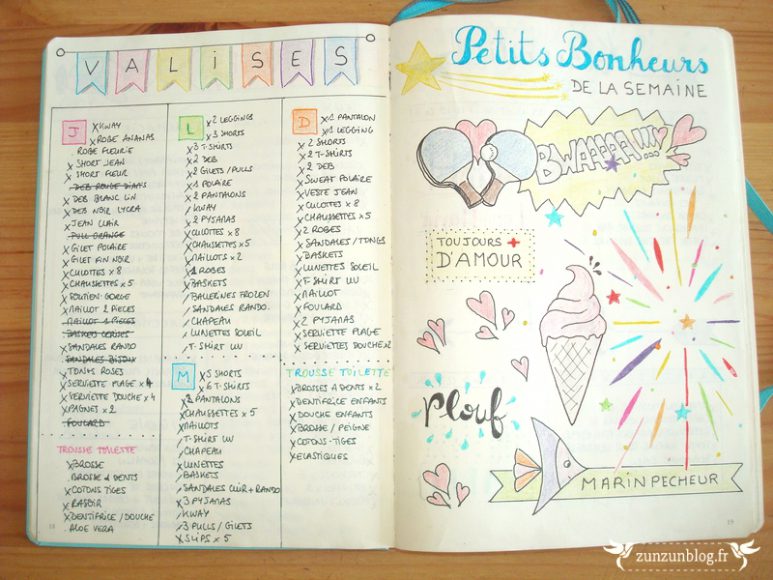 VALISES
J
KWAY
ROBE ANANAS
ROBE FLEURIE
SHORT JEAN
SHORT FLEUR
DEB BLANC LIN
DEB NOIR LYCRA
JEAN CLAIR
PULL ORANGE
GILET POLAIRE
GILET FIN NOIR
CULOTTES x 8
CHAUSSETTES x 5
SOUTIEN-GORGE
MAILLOT 2 PIECES
MAILLOT 1 PIECES
SANDALES RANDO
SANDALES BISOUX
TONGS ROSES
SERVIETTE PLAGE x 4
SERVIETTE DOUCHE x 4
PAGNES x 2
FOULARD
TROUSSE TOILETTE
BROSSE
BROSSE A DENTS
COTONS TIGES
RASOIR
DENTIFRICE / DOUCHE
ALOE VERA
L
x 2 LEGGINGS
x 3 SHORTS
3 T-SHIRTS
2 DEB
2 GILETS / PULLS
1 POLAIRE
2 PANTALONS
KWAY
2 PYJAMAS
CULOTTES x 8
CHAUSSETTES x 5
MAILLOTS x 2
1 ROBES
BASKETS
BALLERINES FROZEN
SANDALES RANDO
CHAPEAU
LUNETTES SOLEIL
T-SHIRT UV
M
x 5 SHORTS
x 6 T-SHIRTS
2 PANTALONS
CHAUSSETTES x 5
MAILLOTS
T-SHIRT UV
CHAPEAU
LUNETTES
BASKETS
SANDALES CUIR + RANDO
3 PYJAMAS
KWAY
3 PULLS / GILETS
SLIPS x 5
D
x 1 PANTALON
x 1 LEGGING
2 SHORTS
2 T-SHIRTS
2 DEB
SWEAT POLAIRE
VESTE JEAN
CULOTTES x 8
CHAUSSETTES x 5
2 ROBES
SANDALES / TONGS
BASKETS
LUNETTES SOLEIL
T-SHIRT UV
MAILLOT
FOULARD
2 PYJAMAS
SERVIETTE PLAGE
SERVIETTES DOUCHE x 2
TROUSSE TOILETTE
BROSSES A DENTS x 2
DENTIFRICE ENFANTS
DOUCHE ENFANTS
BROSSE / PEIGNE
COTONS-TIGES
ELASTIQUES
Petits Bonheurs
DE LA SEMAINE
BWAAAAA!!!!
TOUJOURS +
D'AMOUR
Plouf
MARIN PECHEUR
zunzunblog.fr